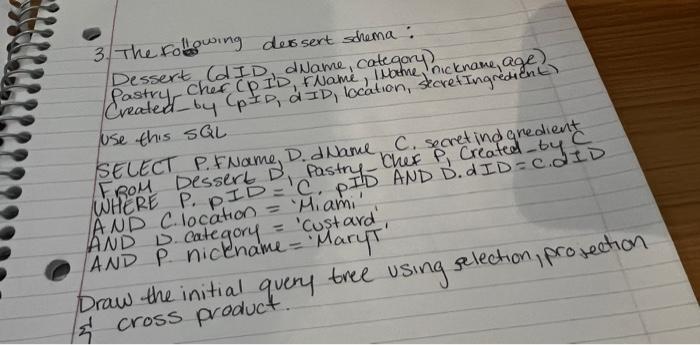 3. The following dessert schema :
Dessert (dID, dName, category)
Pastry_Chef (pID, fName, lName, nickname, age)
Created_by (pID, dID, location, secretIngredient)
Use this SQL
SELECT P.FName, D.dName, C. secretindgredient
FROM Dessert D, Pastry_Chef P, Created_by C
WHERE P. pID = C. pID AND D.dID = C.dID
AND C.location = 'Miami'
AND D. category = 'custard'
AND P. nickname = 'MaryT'
Draw the initial query tree using selection, projection
& cross product.